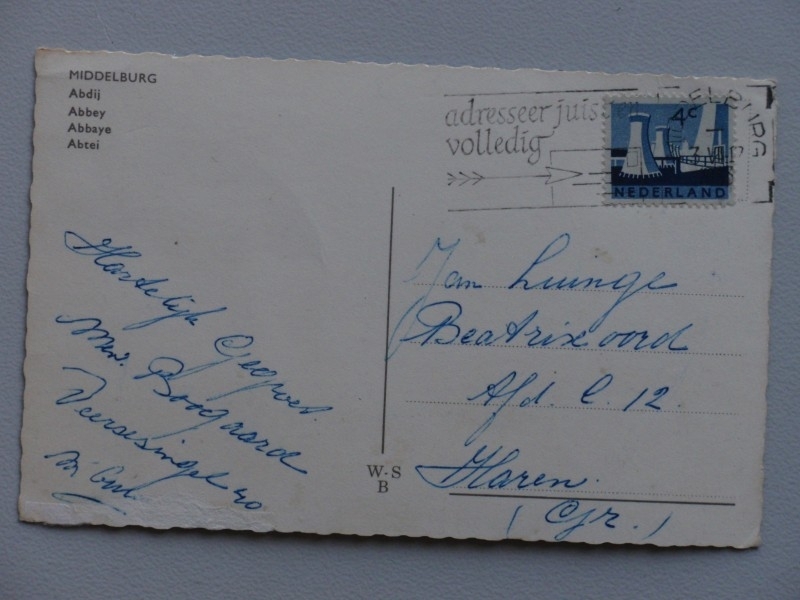 MIDDELBURG
Abdij
Abbey
Abbaye
Abtei
adresseer juist en
volledig
4c
NEDERLAND
Hartelijk Gegroet.
Mw. Boogaard
Veersesingel 40
M'
W-S
B
Jan Luinge
Beatrixoord
Afd. C. 12
Haren.
(Gr.)